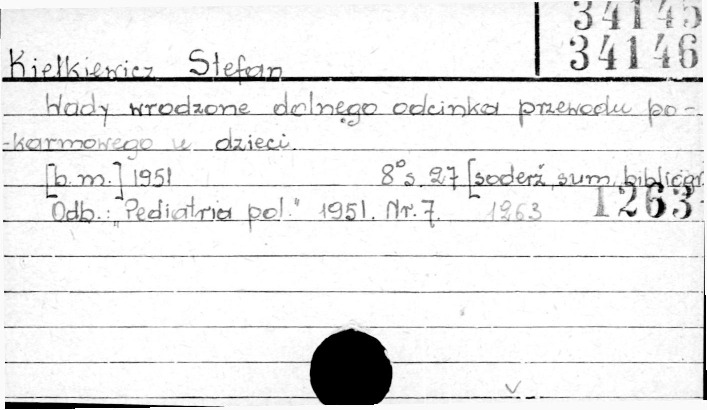 34145
34146
Kiełkiewicz Stefan
Wady wrodzone dolnego odcinka przewodu po-
-karmowego u dzieci.
[b.m.] 1951 8° s. 27 [soderž, sum, bibliogr.
Odb.: "Pediatria pol." 1951. Nr. 7. 1263 1263